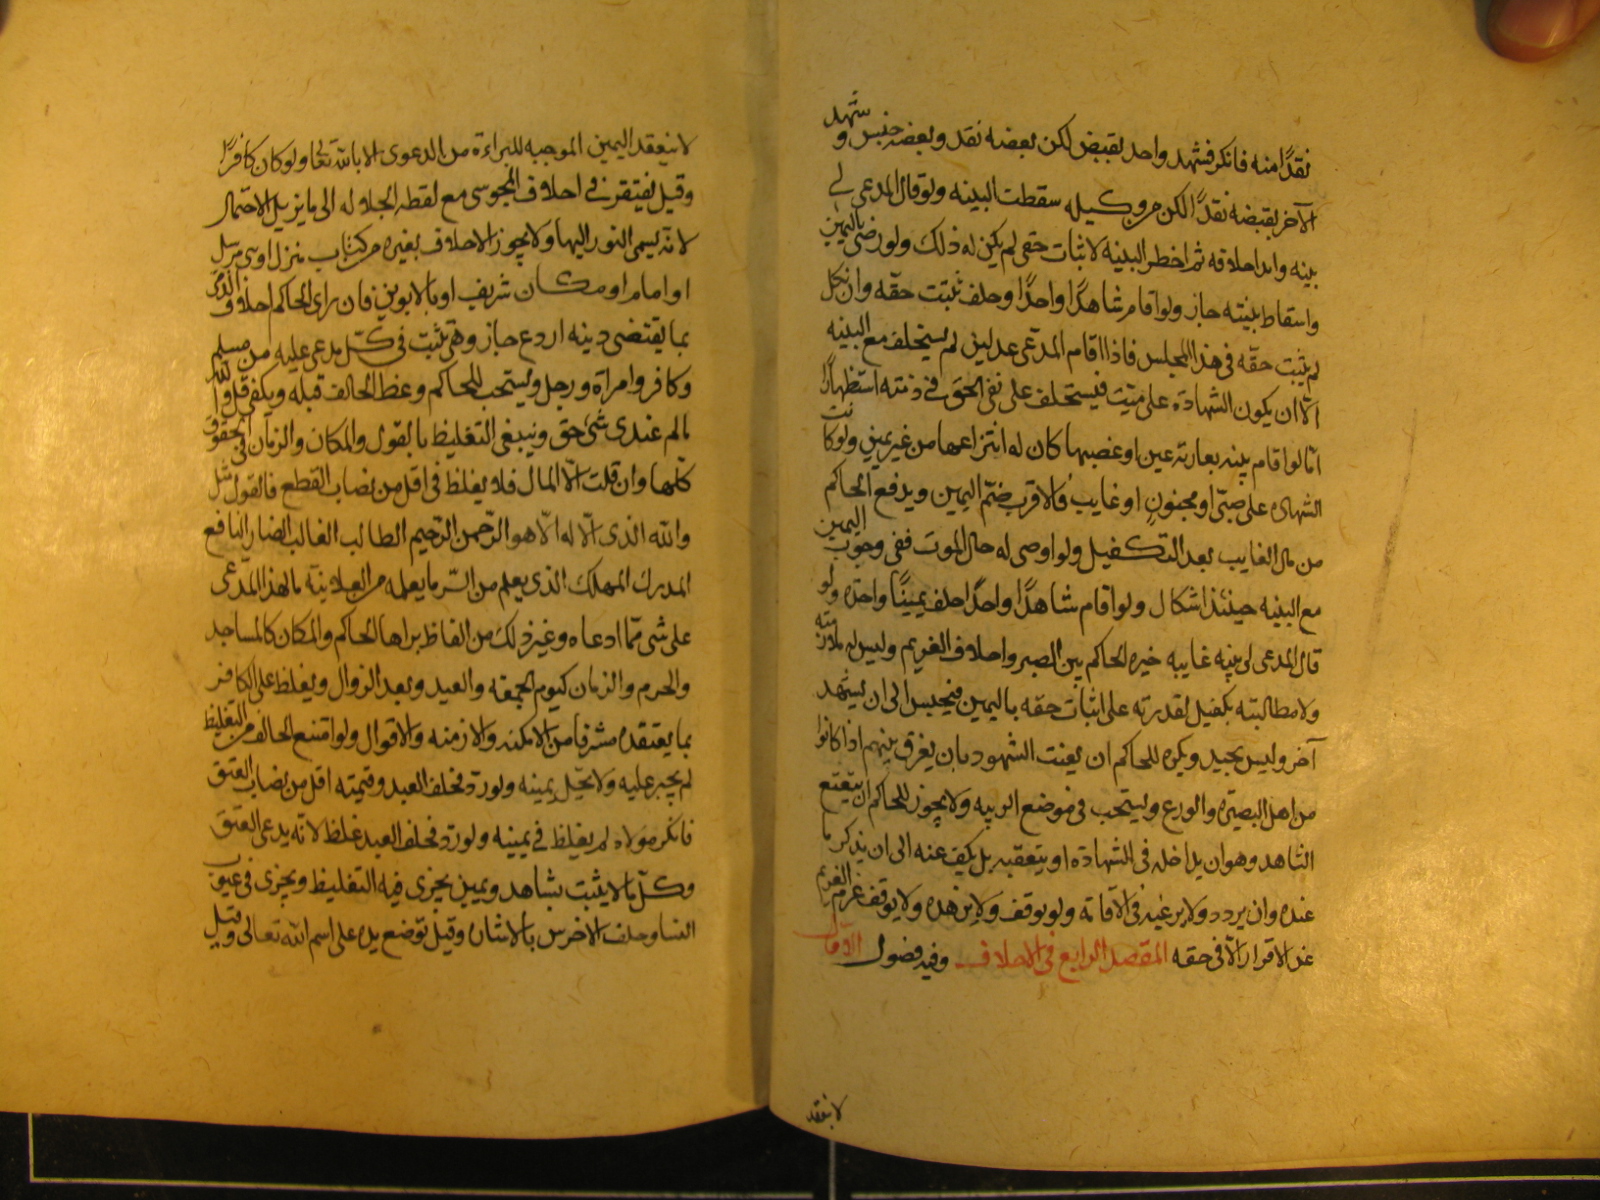 نقدًا منه فانكر فشهد واحد بقبض لكن بعضه نقد وبعضه جنس وشهد
الآخر بقبضه نقدًا لكن من وكيله سقطت البينه ولو قال المدعى لى
بينه واىد احلافه ثم احظر البينه لاثبات حقى لم يكن له ذلك ولو رضى باليمين
واسقاط بينته جاز ولو اقام شاهدًا واحدًا وحلف ثبتت حقّه وان نكل
لم يثبت حقّه فى هذا المجلس فاذا اقام المدّعى عدلين لم يستحلف مع البينه
الّا ان يكون الشهادة على ميّت فيستحلف على نفى الحق فى ذمّته استظهارًا
امّا لو اقام بينه بعارية عين او غصبها كان له انتزاعها من غير يمين ولو كانت
الشهاده على صبّى او مجنون او غايب فالاقرب ضمّ اليمين ويدفع الحاكم
من مال الغايب بعد التكفيل ولو اوصى له حال الموت ففى وجوب اليمين
مع البينه حينئذ اشكال ولو اقام شاهدًا واحدًا حلف يمينًا واحده ولو
قال المدعى لى بينه غايبه خيره الحاكم بين الصبر واحلاف الغريم وليس له ملازمته
ولا مطالبته بكفيل لقدرته على اثبات حقه باليمين فيحبس الى ان يشهد
آخر وليس بجيد ويكره للحاكم ان يعنت الشهود بان يفرق بينهم اذا كانوا
من اهل البصيره والورع ويستحب فى موضع الريبه ولا يجوز للحاكم ان يتعتع
الشاهد وهو ان يداخله فى الشهادة او يتعقبه بل يكف عنه الى ان يذكر ما
عنده وان يردد ولا يرغبه فى الاقامة ولو توقف ولا يزهده ولا يوقف غرم الغريم
عن الاقرار الّا فى حقه المقصد الرابع فى الاحلاف وفيه فصول الاوّل
لا ينعقد
لا ينعقد اليمين الموجبه للبراءة من الدعوى الا بالله تعالى ولو كان كافرًا
وقيل يفتقر فى احلاف المجوسى مع لفظه الجلاله الى ما يزيل الاحتمال
لانه يسمى النور الها ولا يجوز الاحلاف بغيره من كتاب منزل او نبى مرسل
او امام او مكان شريف او بالابوين فان راى الحاكم احلاف الذمّى
بما يقتضى دينه اردع جاز وهى تثبت فى كلّ مدعى عليه من مسلم
وكافر وامراة ورجل ويستحب للحاكم وعظ الحالف قبله ويكفى قل والله
ما لم عندى شئ حق وينبغى التغليظ بالقول والمكان والزمان فى الحقوق
كلّها وان قلت الّا المال فلا يغلظ فى اقل من نصاب القطع فالقول مثل
والله الذى لا اله الّا هو الرّحمن الرّحيم الطالب الغالب الضار النافع
المدرك المهلك الذى يعلم من السّر ما يعلمه من العلانية ما لهذا المدّعى
على شى ممّا ادعاه وغير ذلك من الفاظ يراها الحاكم والمكان كالمساجد
والحرم والزمان كيوم الجمعه والعيد وبعد الزوال ويغلظ على الكافر
بما يعتقده مشرفا من الامكنه والازمنه والاقوال ولو امتنع الحالف من التغليظ
لم يجبر عليه ولا تحلّ يمينه ولو ردّ فحلف العبد وقيمته اقل من نصاب العتق
فانكر مولاه لم يغلظ فى يمينه ولو ردّ فحلف العبد غلظ لانه يدعى العتق
وكلّ ما لا يثبت بشاهد ويمين يجرى فيه التغليظ ويجرى فى عيوب
النسا وحلف الاخرس بالاشاره وقيل توضع يده على اسم الله تعالى وقيل